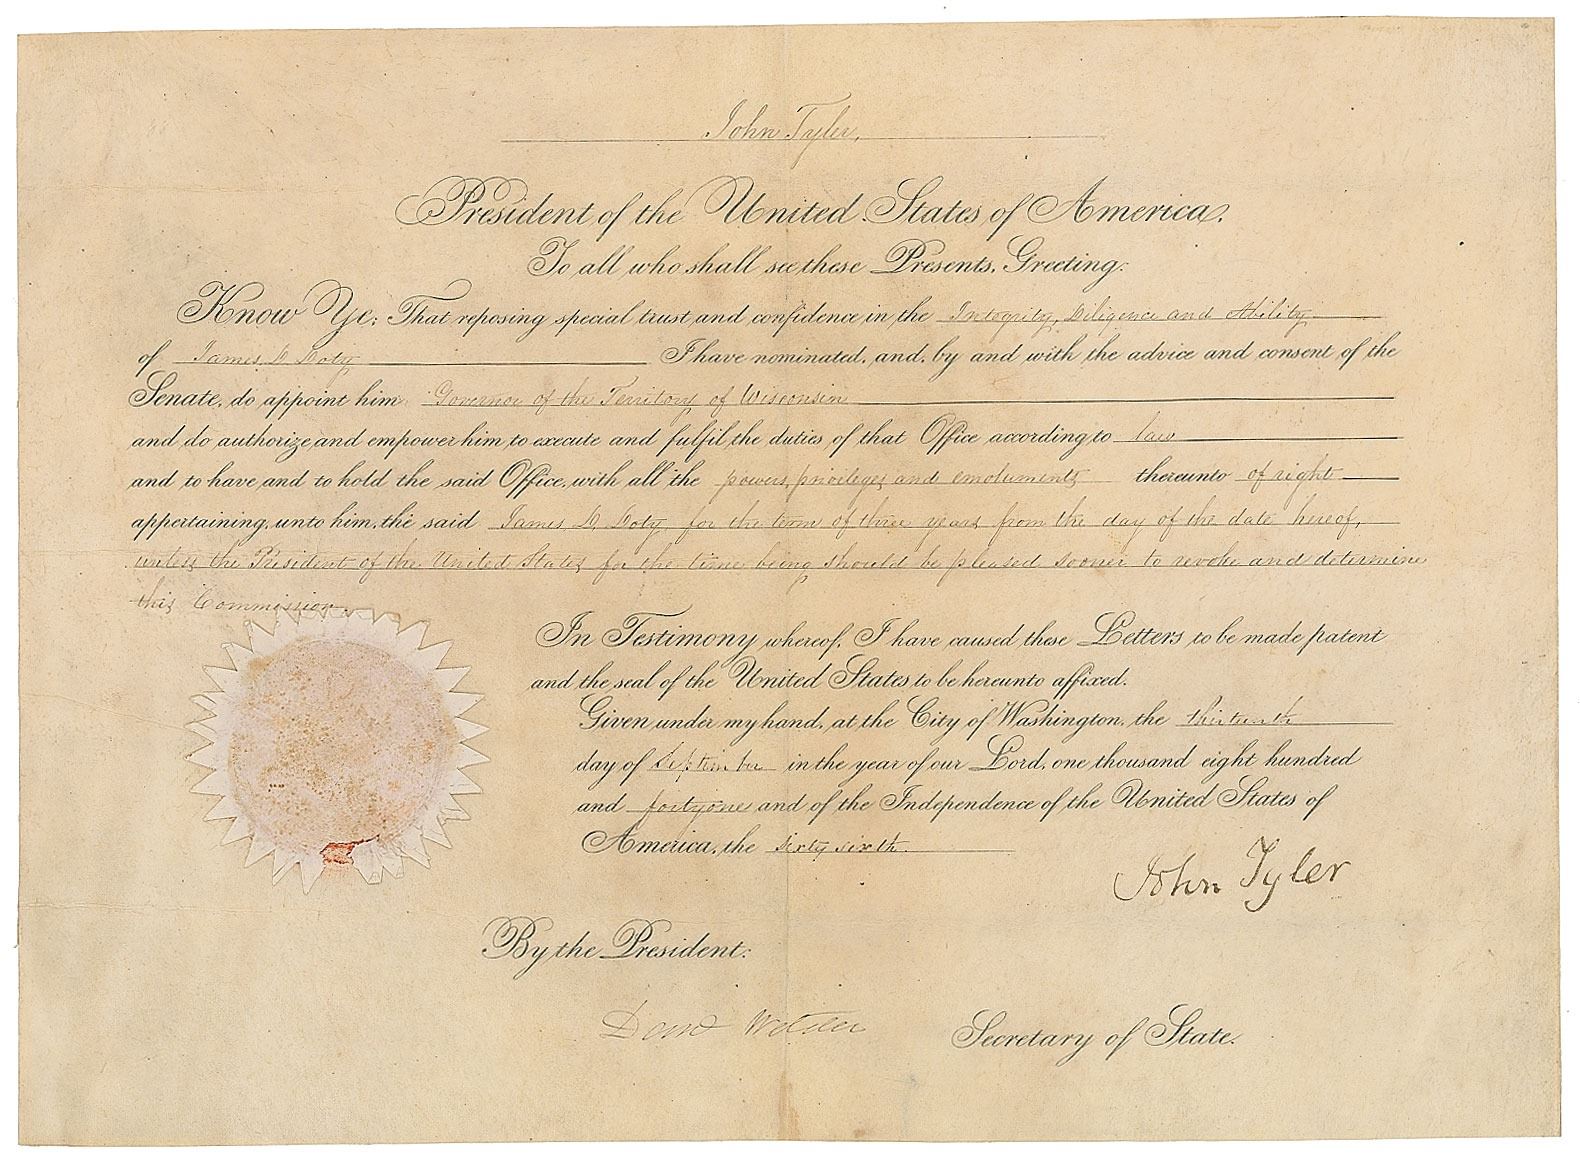 John Tyler,
President of the United States of America.
To all who shall see these Presents, Greeting:
Know Ye; That reposing special trust and confidence in the Integrity, Diligence and Ability
of James D Doty I have nominated, and, by and with the advice and consent of the
Senate, do appoint him Governor of the Territory of Wisconsin
and do authorize and empower him to execute and fulfil the duties of that Office according to law
and to have and to hold the said Office, with all the powers, privileges and emoluments thereunto of right
appertaining, unto him, the said James D Doty for the term of three years from the day of the date hereof,
unless the President of the United States for the time being should be pleased sooner to revoke and determine
this Commission.
In Testimony whereof, I have caused these Letters to be made patent
and the seal of the United States to be hereunto affixed.
Given under my hand, at the City of Washington, the thirteenth
day of September in the year of our Lord, one thousand eight hundred
and forty one and of the Independence of the United States of
America, the sixty sixth.
John Tyler
By the President:
Danl Webster
Secretary of State.